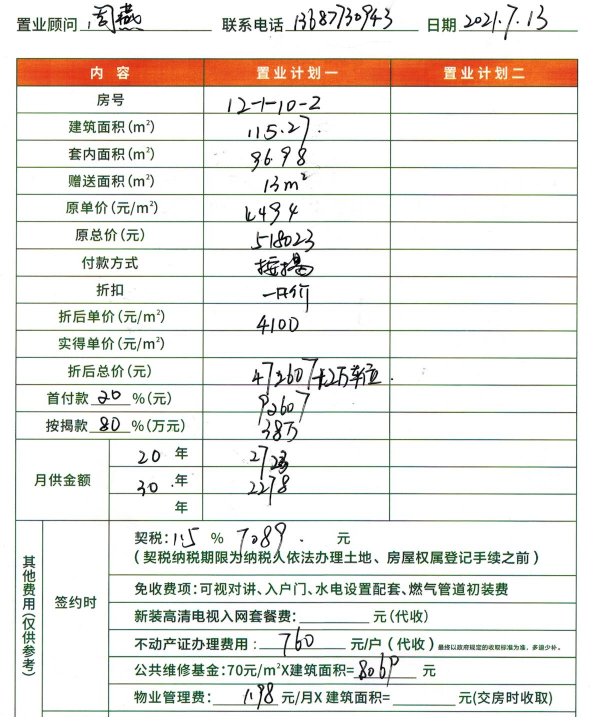 置业顾问 周燕 联系电话 13687730943 日期 2021.7.13
内 容 置业计划一 置业计划二
房号 12-1-10-2
建筑面积(m²) 115.27
套内面积(m²) 96.98
赠送面积(m²) 13m²
原单价(元/m²) 4494
原总价(元) 518023
付款方式 按揭
折扣 一口价
折后单价(元/m²) 4100
实得单价(元/m²)
折后总价(元) 472607+2万车位.
首付款 20 %(元) 92607
按揭款 80 %(万元) 38万
月供金额
20 年 2723
30 年 2278
年
其他费用(仅供参考)
签约时
契税: 1.5 % 7089. 元
(契税纳税期限为纳税人依法办理土地、房屋权属登记手续之前)
免收费项:可视对讲、入户门、水电设置配套、燃气管道初装费
新装高清电视入网套餐费: 元(代收)
不动产证办理费用: 760 元/户(代收) 最终以政府规定的收取标准为准，多退少补。
公共维修基金:70元/m²X建筑面积= 8069 元
物业管理费: 1.98 元/月X建筑面积= 元(交房时收取)